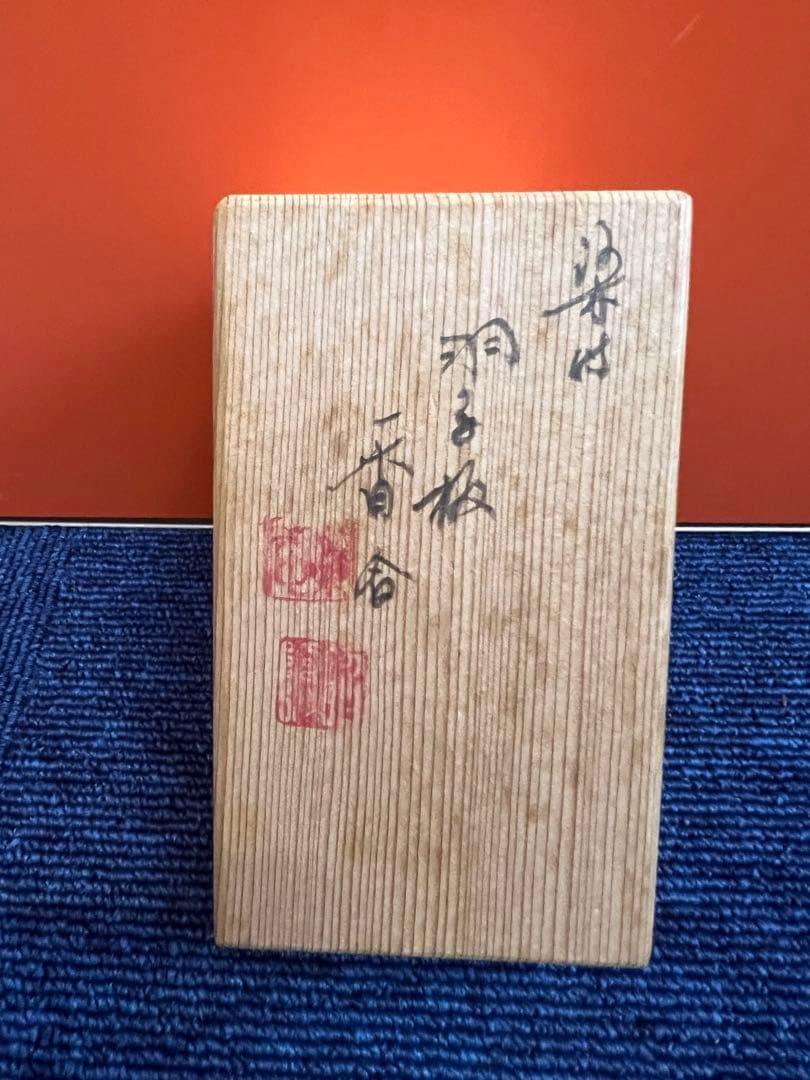 染付
羽子板
香合